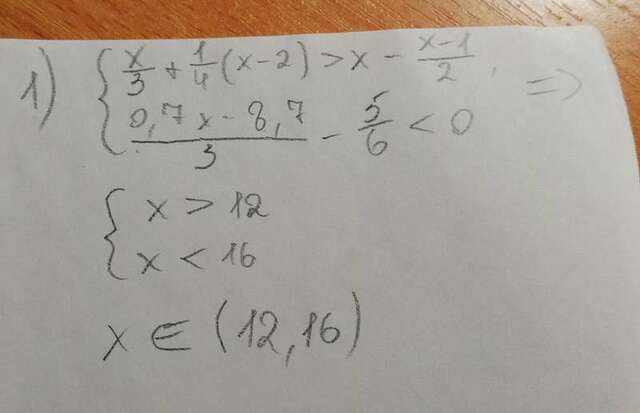 1) { x/3 + 1/4 (x-2) > x - (x-1)/2 , =>
(0,7x - 8,7)/3 - 5/6 < 0
{ x > 12
x < 16
x ∈ (12,16)